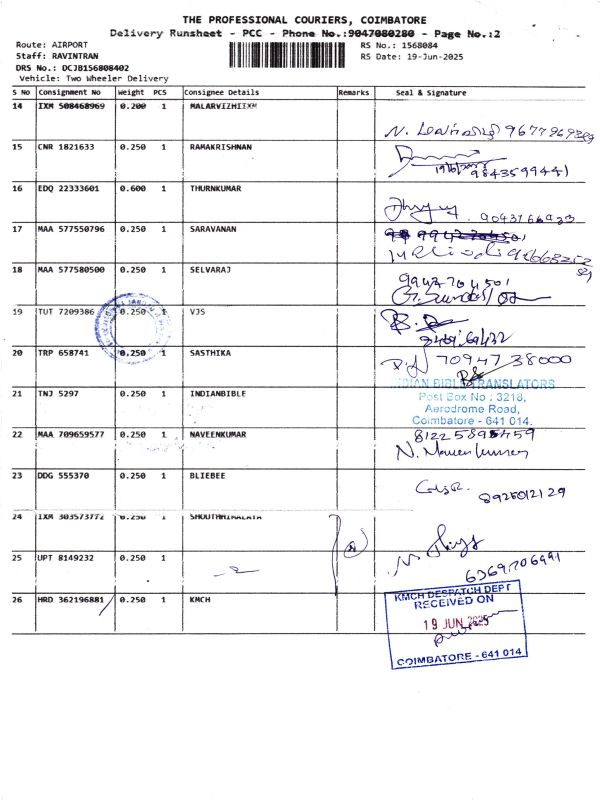 THE PROFESSIONAL COURIERS, COIMBATORE
Delivery Runsheet - PCC - Phone No.:9047080280 - Page No.:2
Route: AIRPORT
RS No.: 1568084
Staff: RAVINTRAN
RS Date: 19-Jun-2025
DRS No.: DCJB156808402
Vehicle: Two Wheeler Delivery
S No Consignment No Weight PCS Consignee Details Remarks Seal & Signature
14 IXM 508468969 0.200 1 MALARVIZHIIXM
N.
15 CNR 1821633 0.250 1 RAMAKRISHNAN
9843599441
16 EDQ 22333601 0.600 1 THURNKUMAR
17 MAA 577550796 0.250 1 SARAVANAN
18 MAA 577580500 0.250 1 SELVARAJ
9942704501
19 TUT 7209386 0.250 1 VJS
20 TRP 658741 0.250 1 SASTHIKA
7094738000
21 TNJ 5297 0.250 1 INDIANBIBLE
INDIAN BIBLE TRANSLATORS
Post Box No : 3218,
Aerodrome Road,
Coimbatore - 641 014.
22 MAA 709659577 0.250 1 NAVEENKUMAR
N. Naveen kumar
23 DDG 555370 0.250 1 BLIEBEE
8925012129
24 IXM 303573772 0.250 1 SHOUTHHIMALATA
25 UPT 8149232 0.250 1
6369706991
26 HRD 362196881 0.250 1 KMCH
KMCH DESPATCH DEPT
RECEIVED ON
19 JUN 2025
COIMBATORE - 641 014